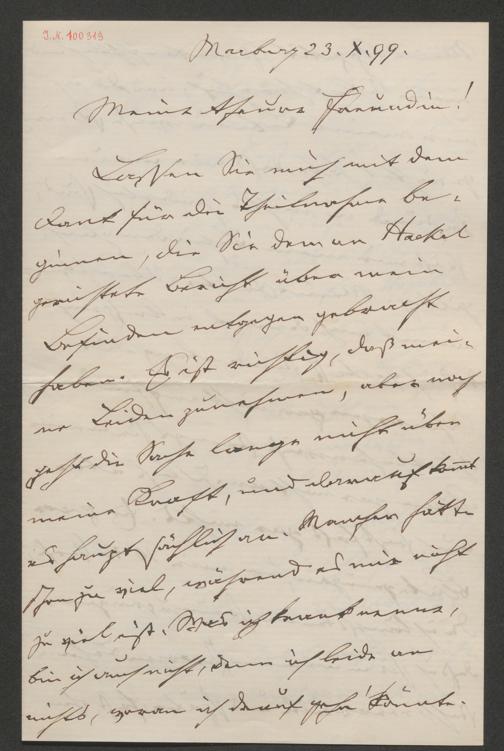 J.N. 100319
Marburg 23. X. 99.
Meine theure Freundin!
Lassen Sie mich mit dem
Dank für die Theilnahme be-
ginnen, die Sie dem an Hackel
gerichteten Bericht über mein
Befinden entgegen gebracht
haben. Es ist richtig, daß mei-
ne Leiden zunehmen, aber noch
geht die Sache lange nicht über
meine Kraft, und darauf kommt
es hauptsächlich an. Mancher hätte
schon zu viel, während es mir nicht
zu viel ist. Was ich krank nenne,
bin ich auch nicht, denn ich leide an
nichts, woran ich drauf gehn könnte.